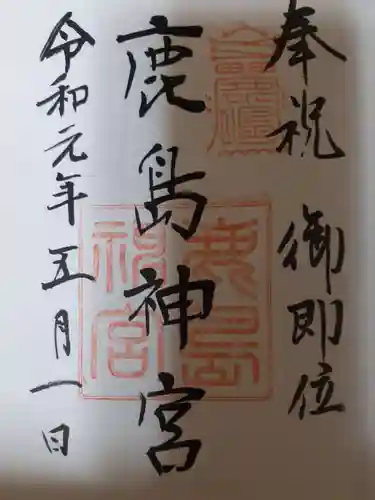 奉祝 御即位
鹿島神宮
令和元年五月一日
鹿島神宮